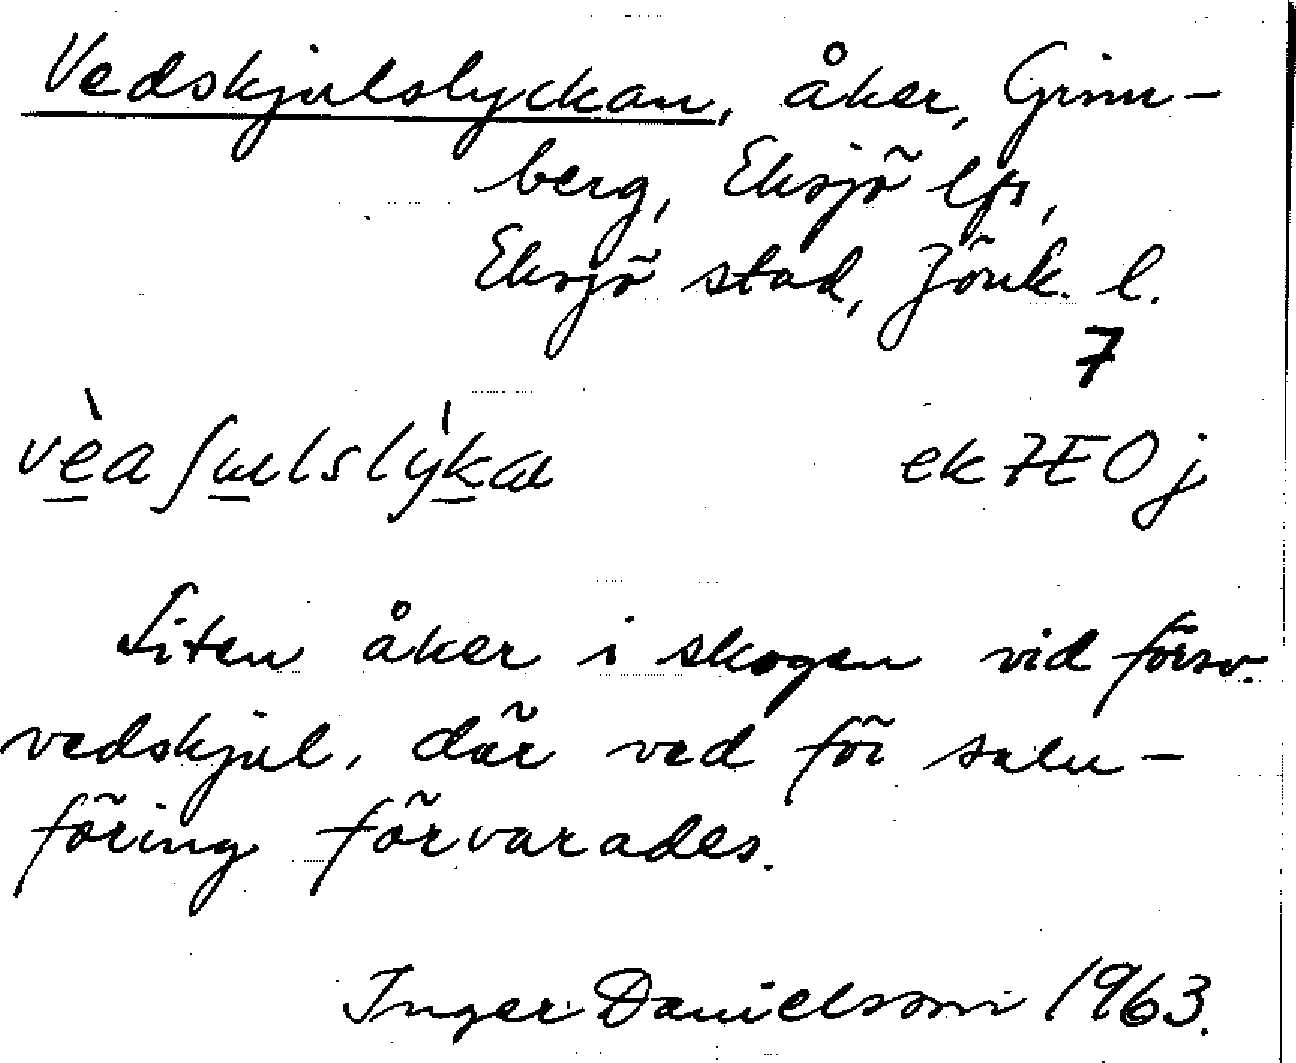 Vedskjulslyckan, åker, Grim-
berg, Eksjö lfs,
Eksjö stad, Jönk. l.
7
ek 7E0j
Liten åker i skogen vid försv.
vedskjul, där ved för salu-
föring förvarades.
Inger Danielsson 1963.